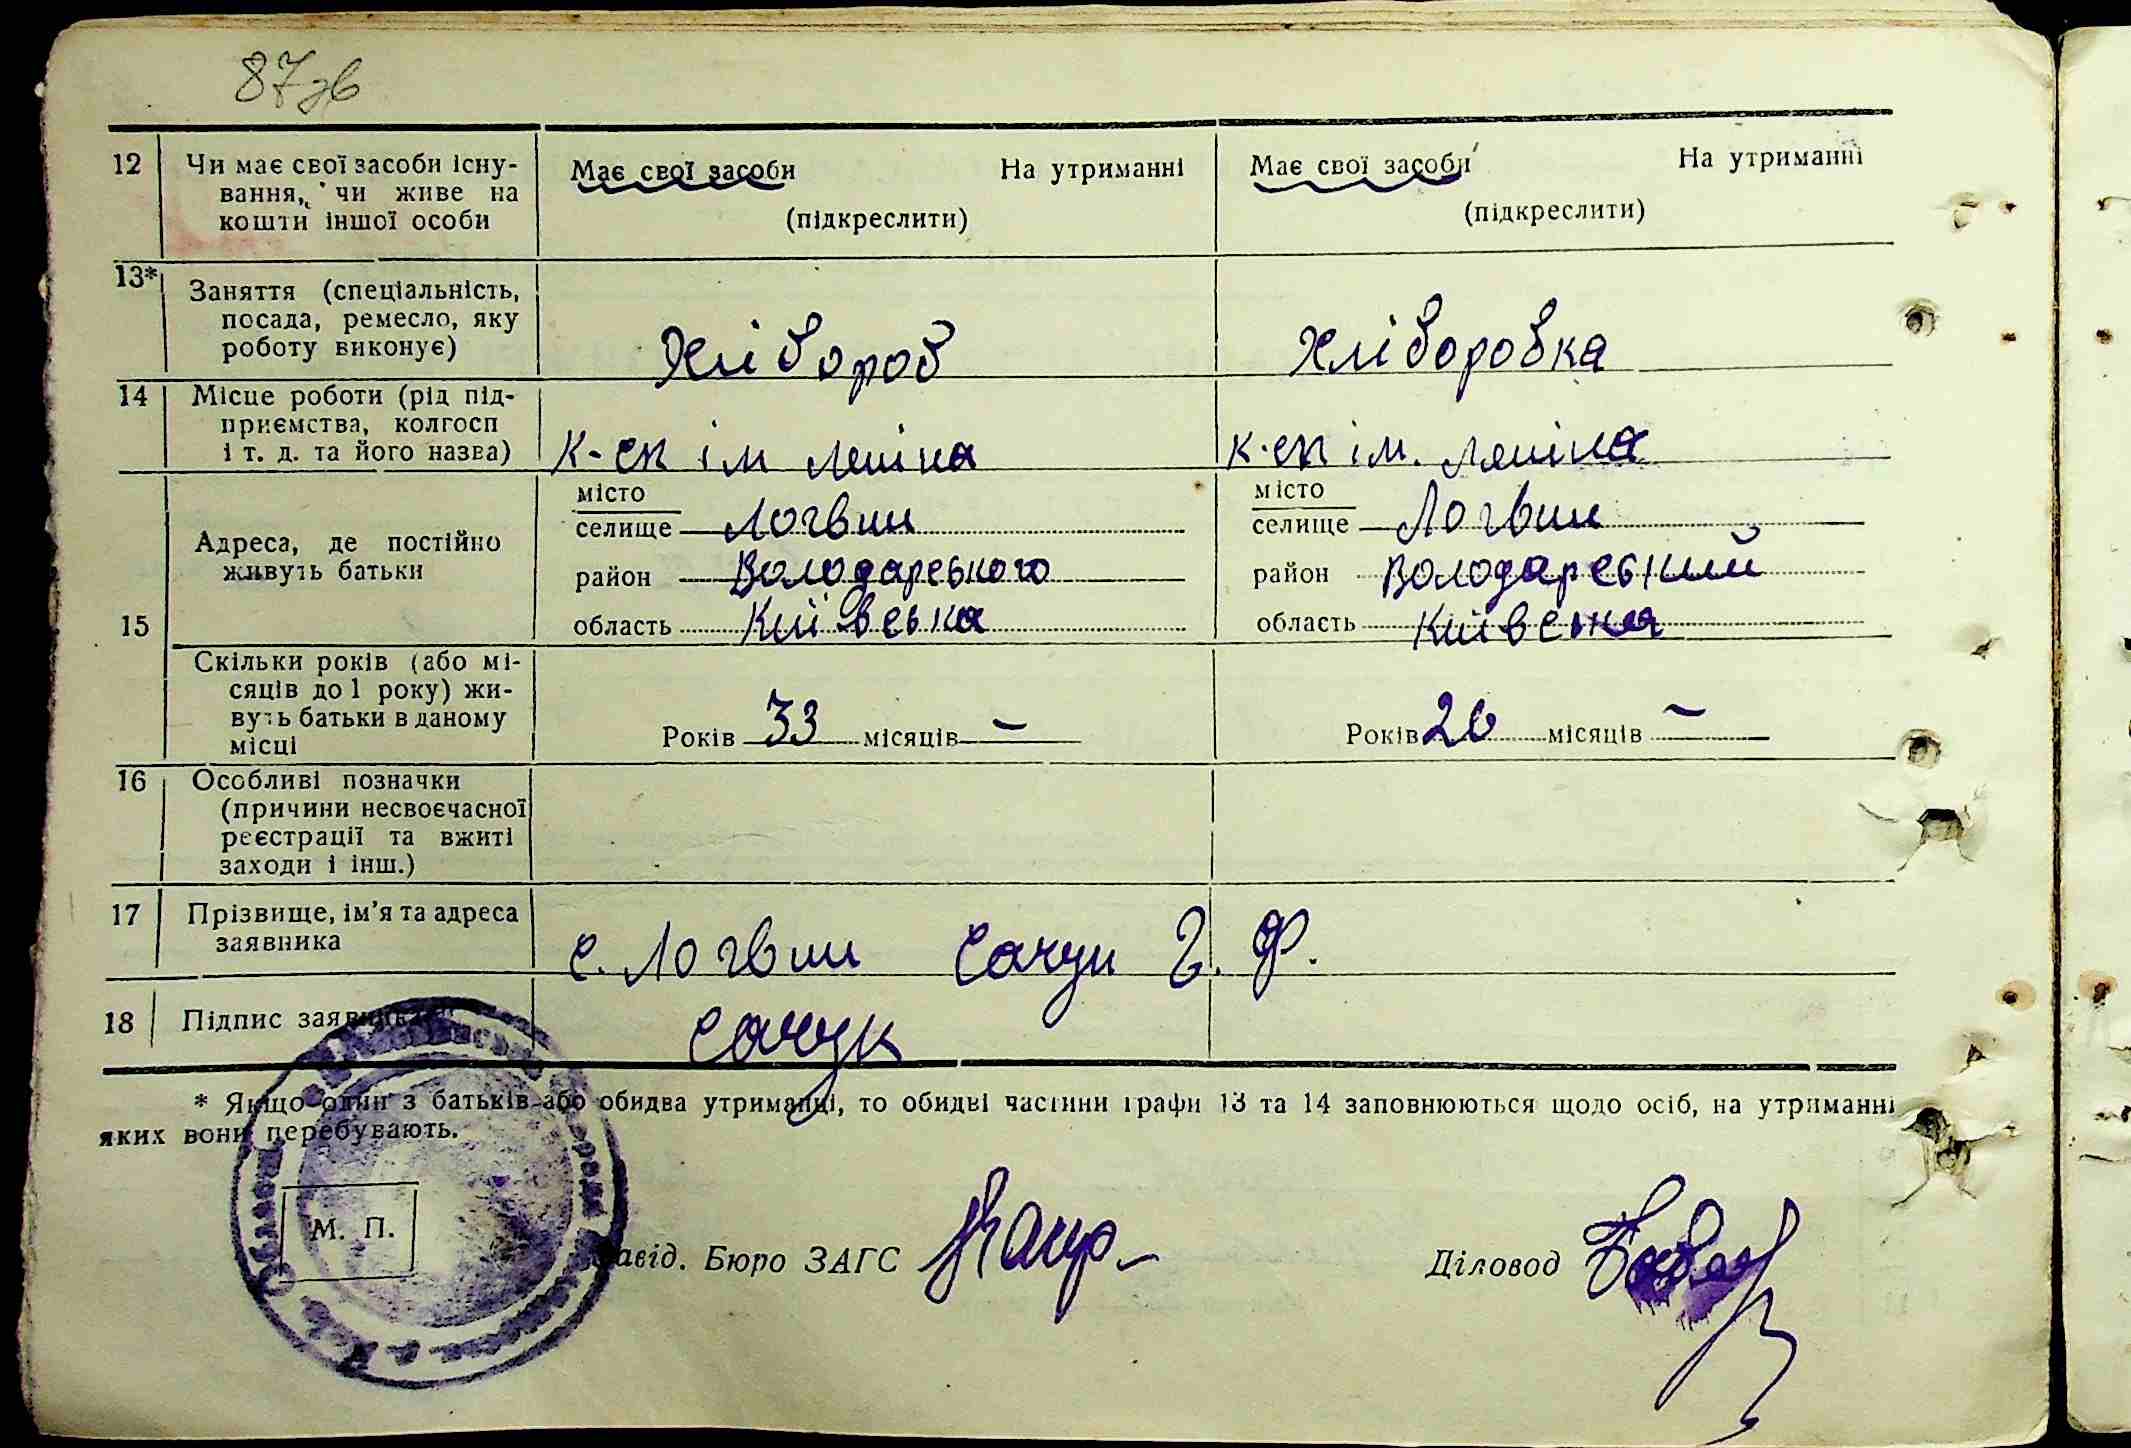 87зв
12 Чи має свої засоби існу-
вання, чи живе на
кошти іншої особи
Має свої засоби На утриманні
(підкреслити)
Має свої засоби На утриманні
(підкреслити)
13* Заняття (спеціальність,
посада, ремесло, яку
роботу виконує)
Хлібороб
Хліборобка
14 Місце роботи (рід під-
приємства, колгосп
і т. д. та його назва)
к-сп ім Леніна
к-сп ім. Леніна
15
Адреса, де постійно
живуть батьки
місто
селище Логвин
район Володарського
область Київська
місто
селище Логвин
район Володарський
область Київська
Скільки років (або мі-
сяців до 1 року) жи-
вуть батьки в даному
місці
Років 33 місяців –
Років 26 місяців –
16 Особливі позначки
(причини несвоєчасної
реєстрації та вжиті
заходи і інш.)
17 Прізвище, ім'я та адреса
заявника
с. Логвин Сачук Г. Ф.
18 Підпис заявника
Сачук
* Якщо один з батьків або обидва утриманці, то обидві частини графи 13 та 14 заповнюються щодо осіб, на утриманні
яких вони перебувають.
М. П.
Завід. Бюро ЗАГС
Діловод